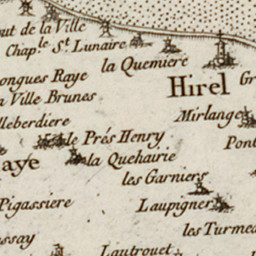 out de la Ville
Chaple St Lunaire
la Quemiere
ongues Raye
Hirel Gr
a Ville Brunes
Mirlange
lleberdiere
le Prés Henry
Pont
aye
la Quehairie
les Garniers
Pigassiere
Laupigner
les Turmea
ssay
Lautrouet